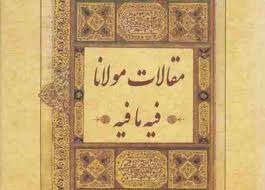 مقالات مولانا
فیه ما فیه